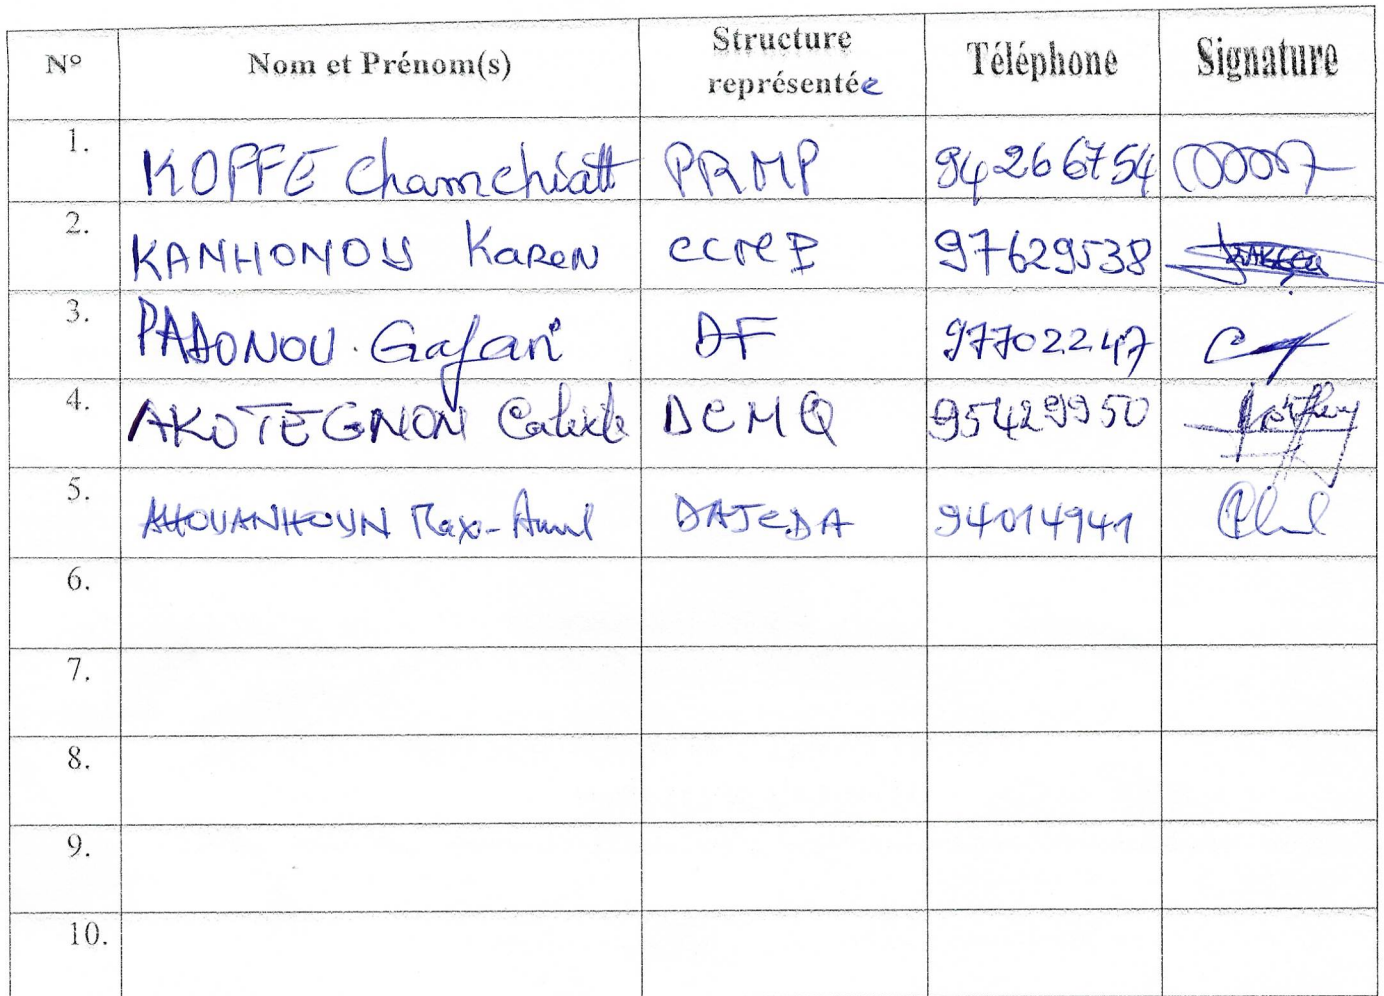 N° Nom et Prénom(s) Structure représentée Téléphone Signature
1. KOFFE Chamchiatt PRMP 94266754
2. KANHONOU Karen CCMP 97629538
3. PADONOU Gafari DF 97702247
4. AKOTEGNON Calixte DCMQ 95429950
5. AHOUANHOUN Max- DAJCDA 94014941
6.
7.
8.
9.
10.